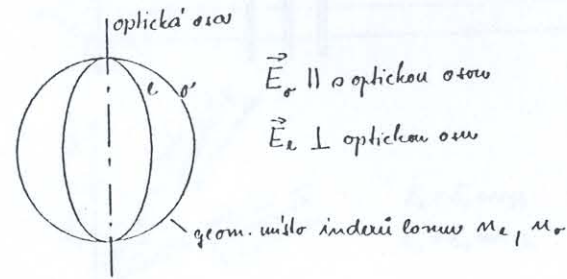 optická osa
e o
E⃗o || s optickou osou
E⃗e ⊥ optickou osu
geom. místo indexů lomu ne, no